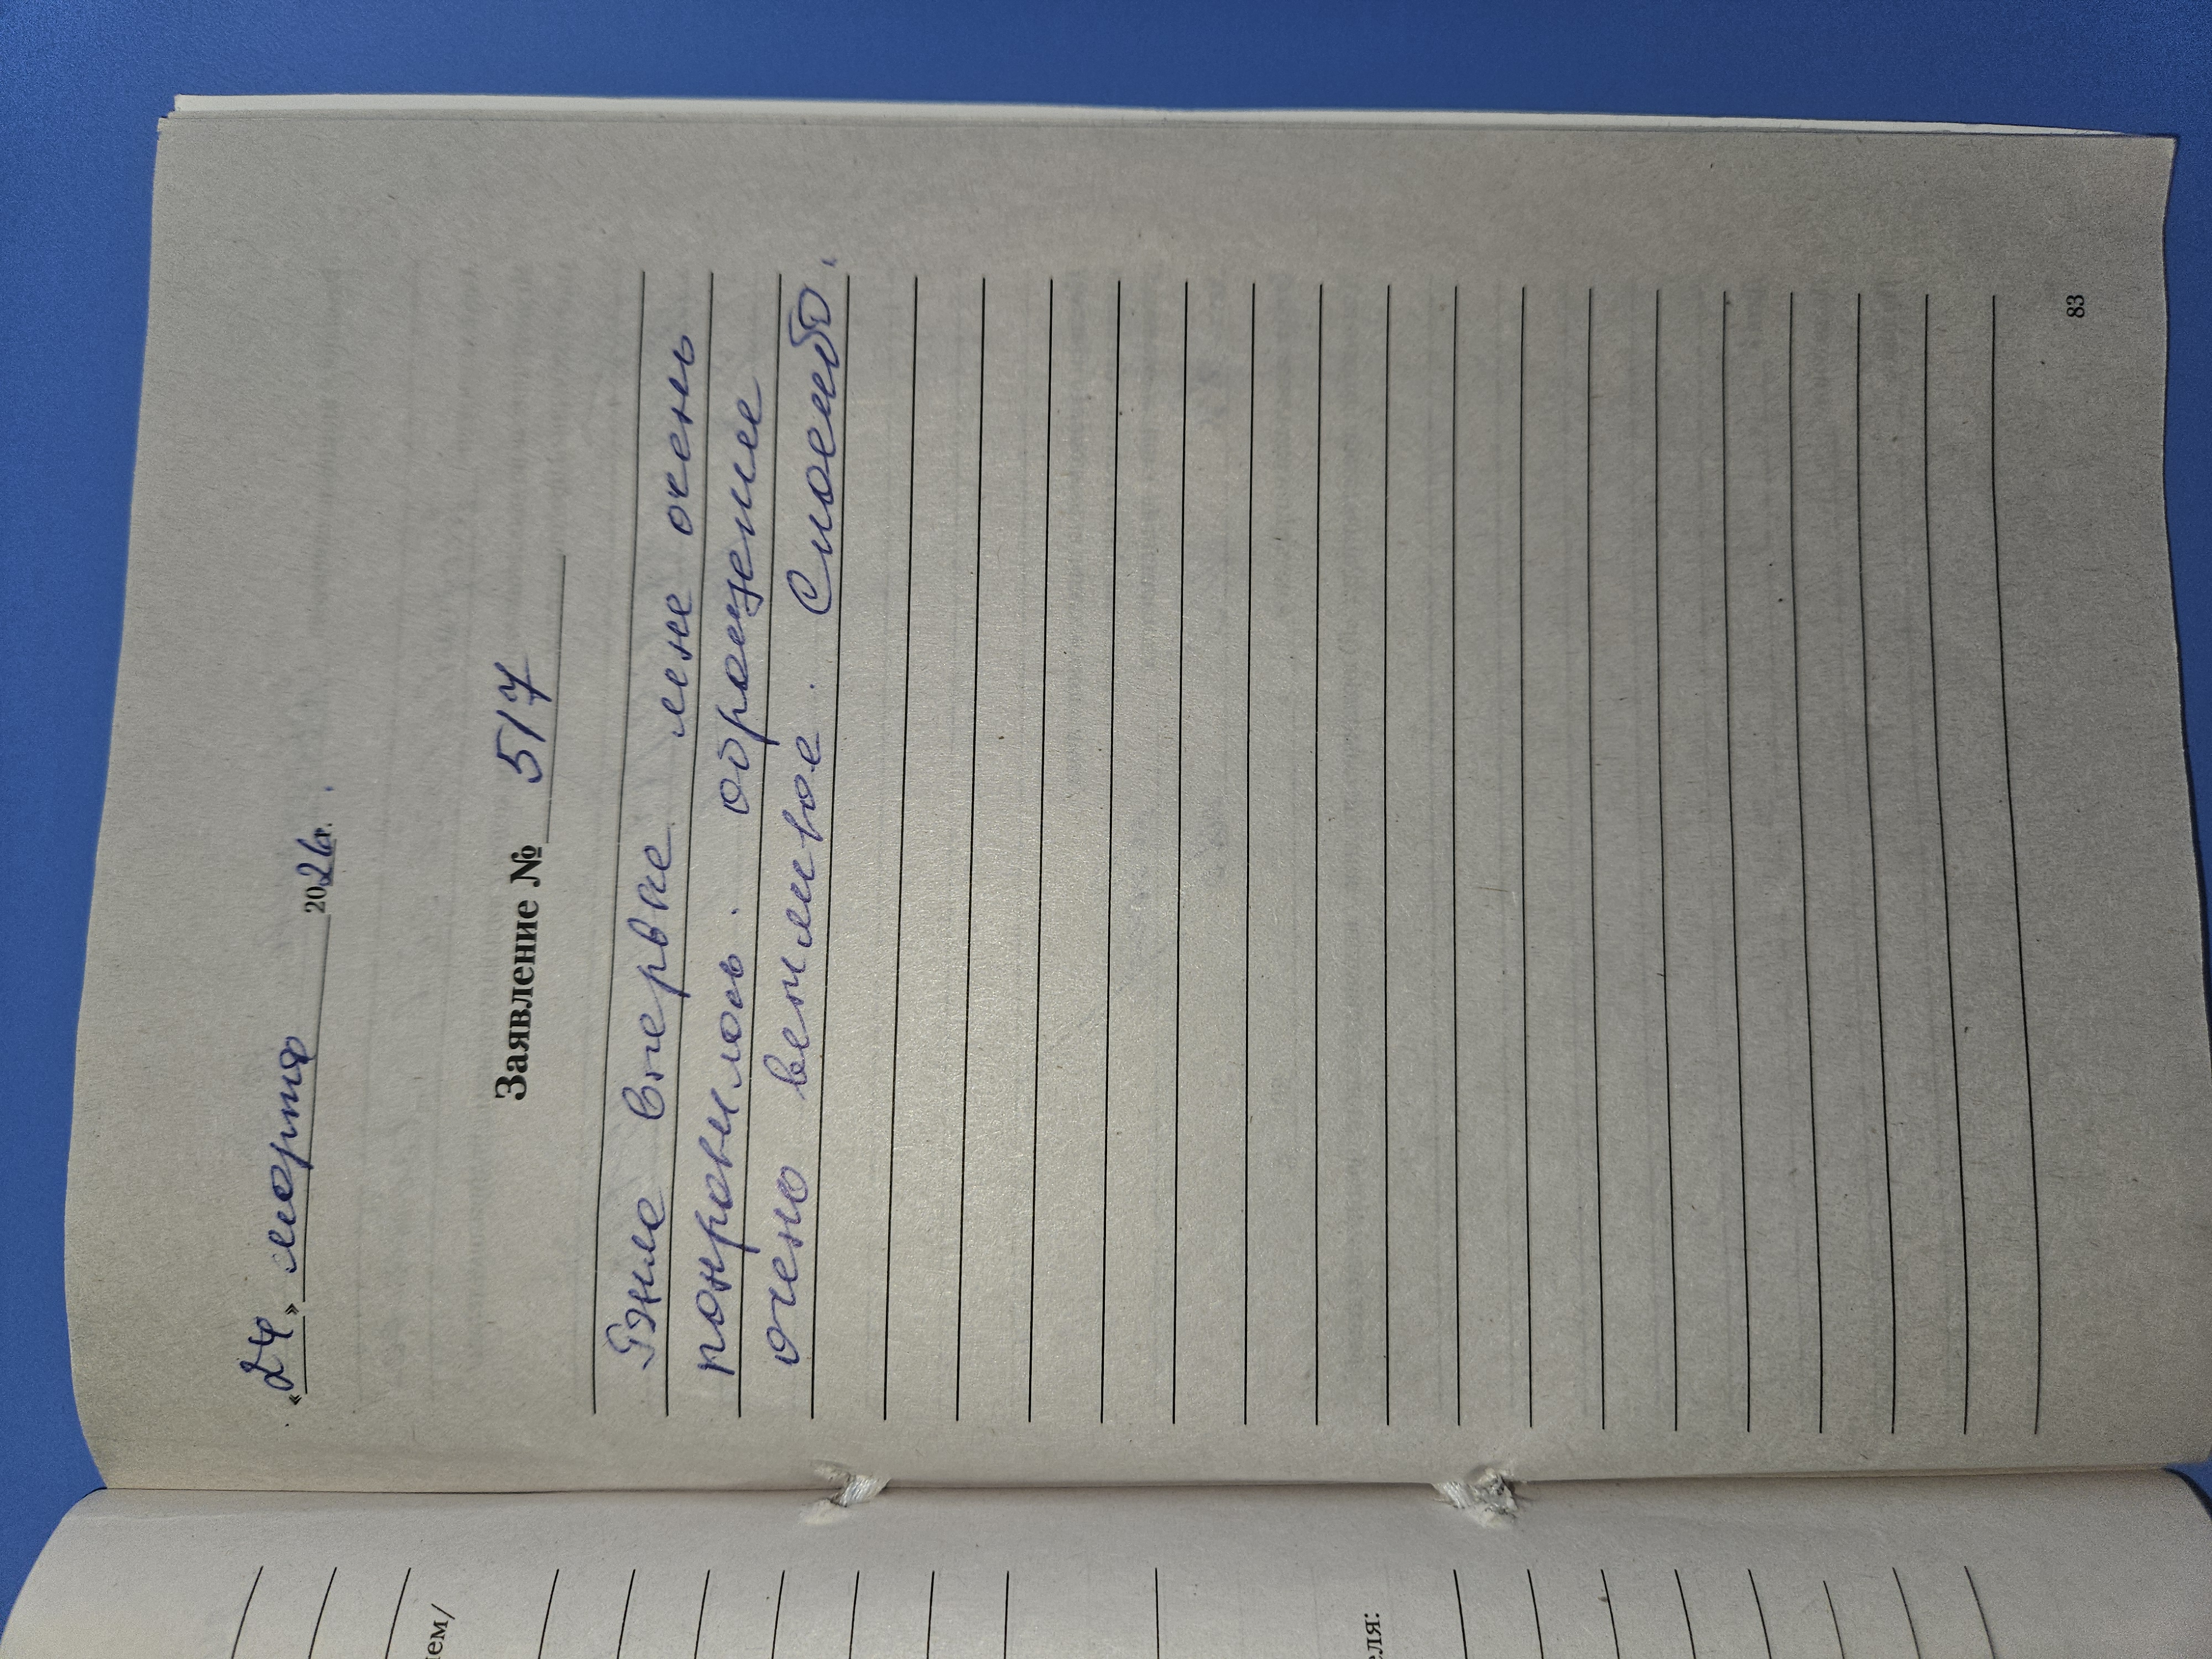 «24» марта 2026г.
Заявление № 517
впервые мне очень
понравилось. обращение
очень вежливое. Спасибо.
83
ем/
еля: